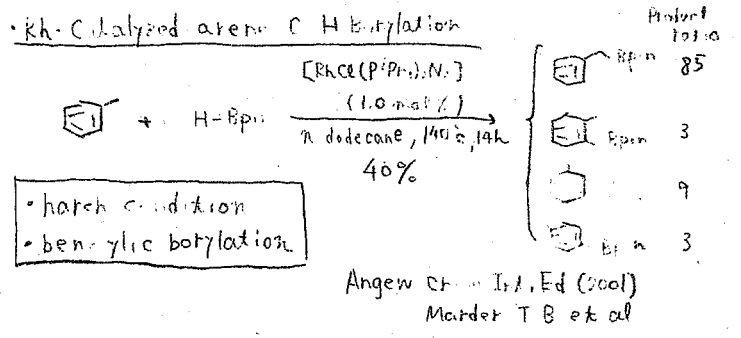 · Rh-Catalyzed arene C H Borylation
Product
ratio
[RhCl(PiPr3)2N2]
(1.0 mol %)
+ H-Bpin
n dodecane, 140°c, 14h
40%
Bpin 85
Bpin 3
9
Bpin 3
· harsh condition
· benzylic borylation
Angew Chem Int. Ed (2001)
Marder T B et al